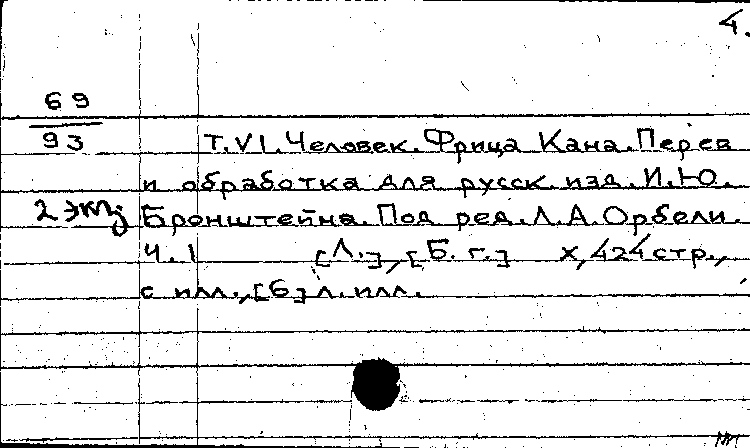 4.
69
93
Т. VI. Человек. Фрица Кана. Перев
и обработка для русск. изд. И.Ю.
2 экз Бронштейна. Под ред. Л.А. Орбели.
Ч. 1 [Л.], [Б. г.] X, 424 стр.,
с илл., [6] л. илл.